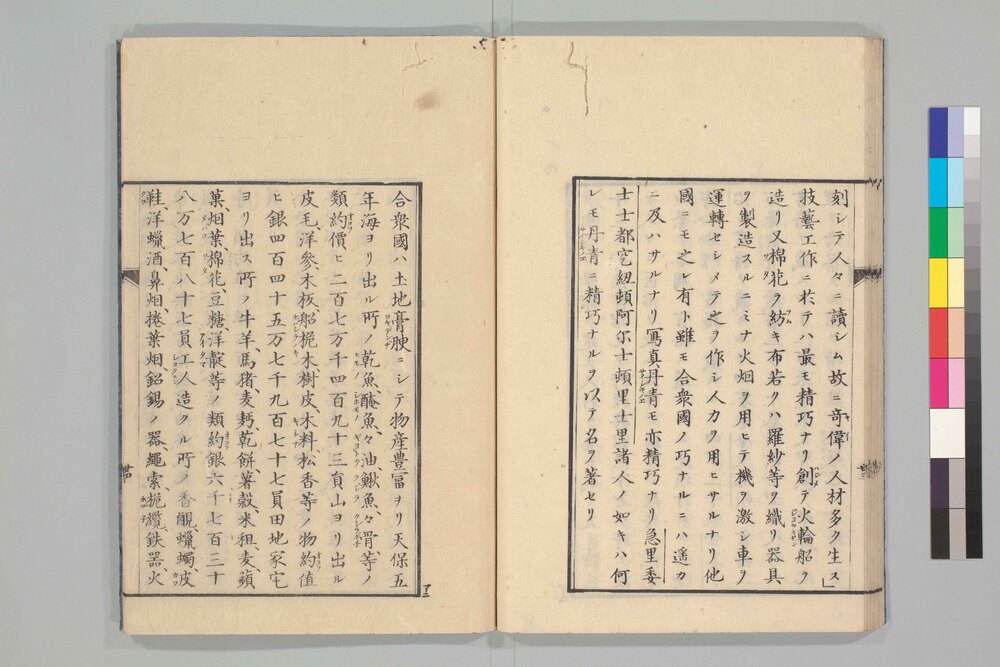 刻シテ人々ニ讀シム故ニ奇偉ノ人材多ク生ス」
技藝工作ニ於テハ最モ精巧ナリ創テ火輪船ヲ
造リ又棉花ヲ紡キ布若クハ羅紗等ヲ織リ器具
ヲ製造スルニミナ火烟ヲ用ヒテ機ヲ激シ車ヲ
運轉セシメテ之ヲ作シ人力ヲ用ヒサルナリ他
國ニモ之レ有ト雖モ合衆國ノ巧ナルニハ遥カ
ニ及ハサルナリ冩真丹青モ亦精巧ナリ急里委
士士都空紐頓阿尔士頓里士里諸人ノ如キハ何
レモ丹青ニ精巧ナルヲ以テ名ヲ著セリ
合衆國ハ土地膏腴ニシテ物産豊冨ヲリ天保五
年海ヨリ出ル所ノ乾魚、醃魚、々油、鰍魚、々骨等ノ
類約價ヒ二百七万千四百九十三員山ヨリ出ル
皮毛、洋參、木板、船桅木、樹皮、木料、松香等ノ物約值
ヒ銀四百四十五万七千九百七十七員田地家宅
ヨリ出ス所ノ牛羊、馬猪、麦麪、乾餅、薯、穀、米、粗麦、蘋
菓、烟葉、棉花、豆、糖、洋靛等ノ類約銀六千七百三十
八万七百八十七員工人造クル所ノ香、蠟燭、皮
鞋、洋蠟、酒、鼻烟、捲葉烟、鉛錫ノ器、繩索、桅纜、鉄器、火